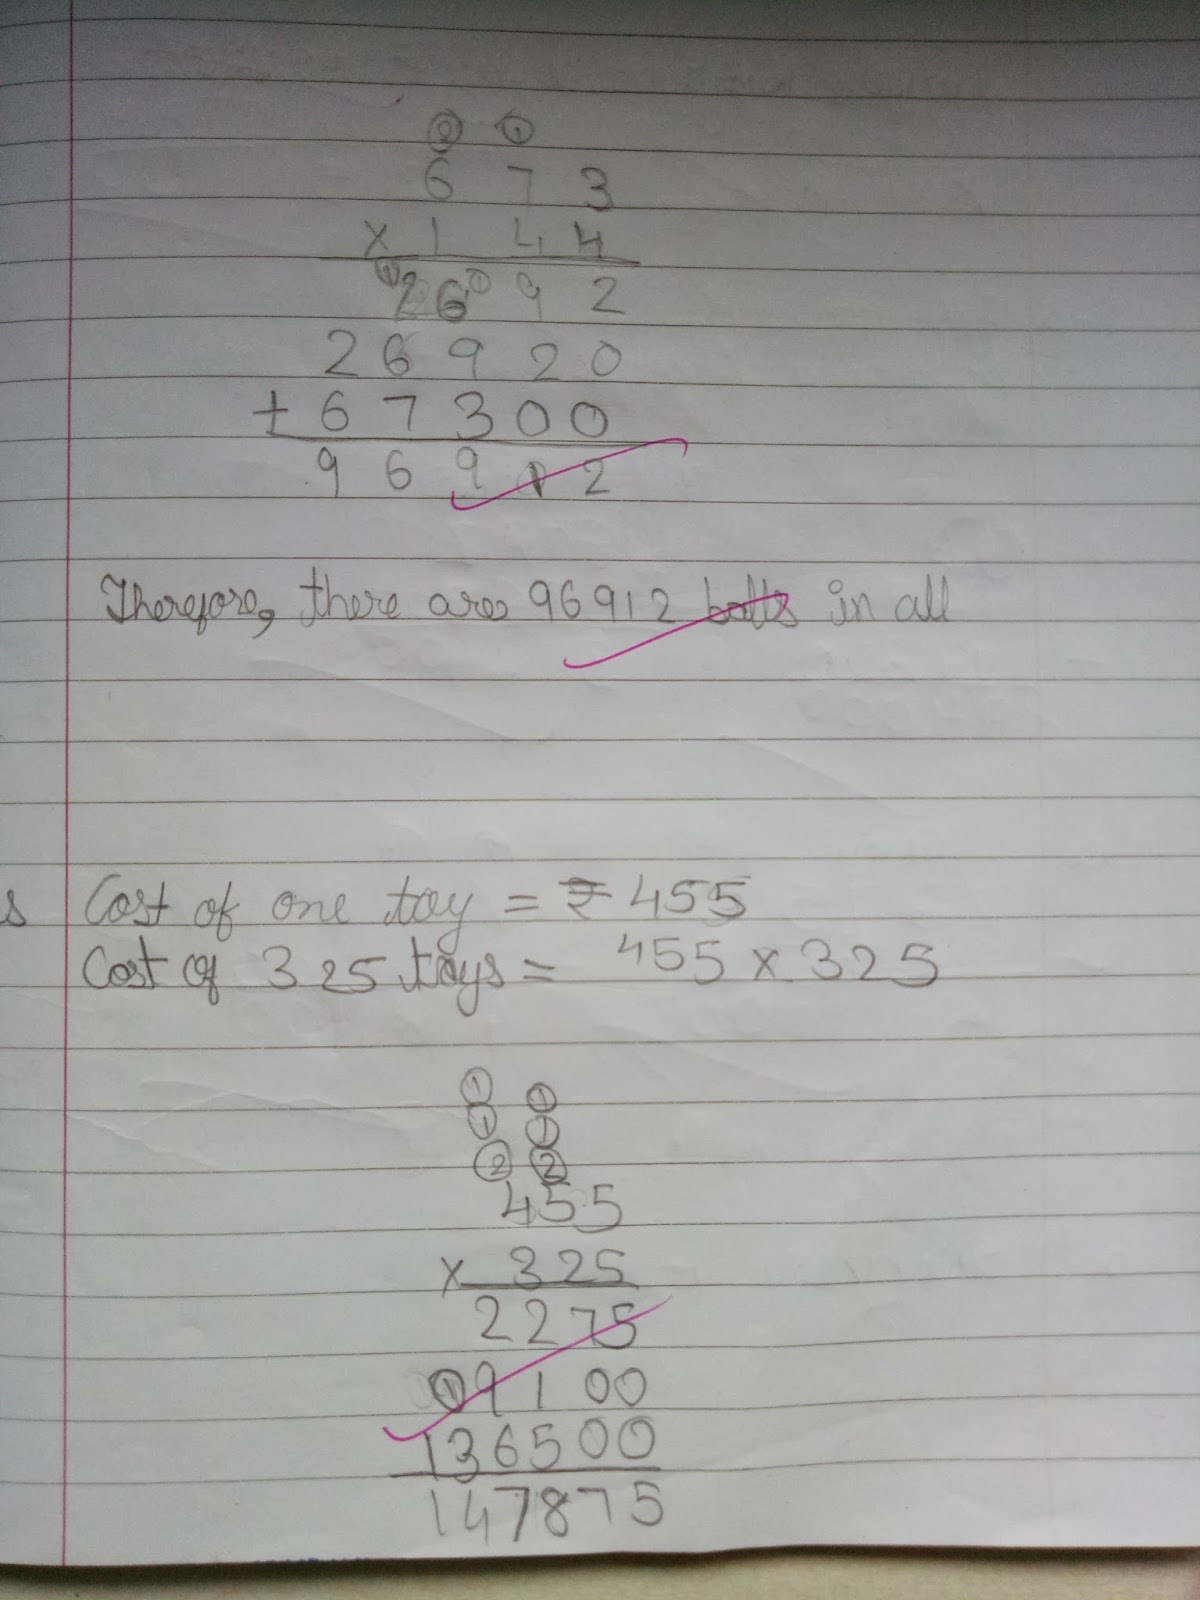 ② ①
6 7 3
x 1 4 4
① 2 6 ① 9 2
2 6 9 2 0
+ 6 7 3 0 0
9 6 9 1 2
Therefore, there are 96912 bolts in all
s Cost of one toy = ₹ 455
Cost of 325 toys = 455 x 325
① ①
① ①
② ②
455
x 325
2275
① 9100
136500
147875